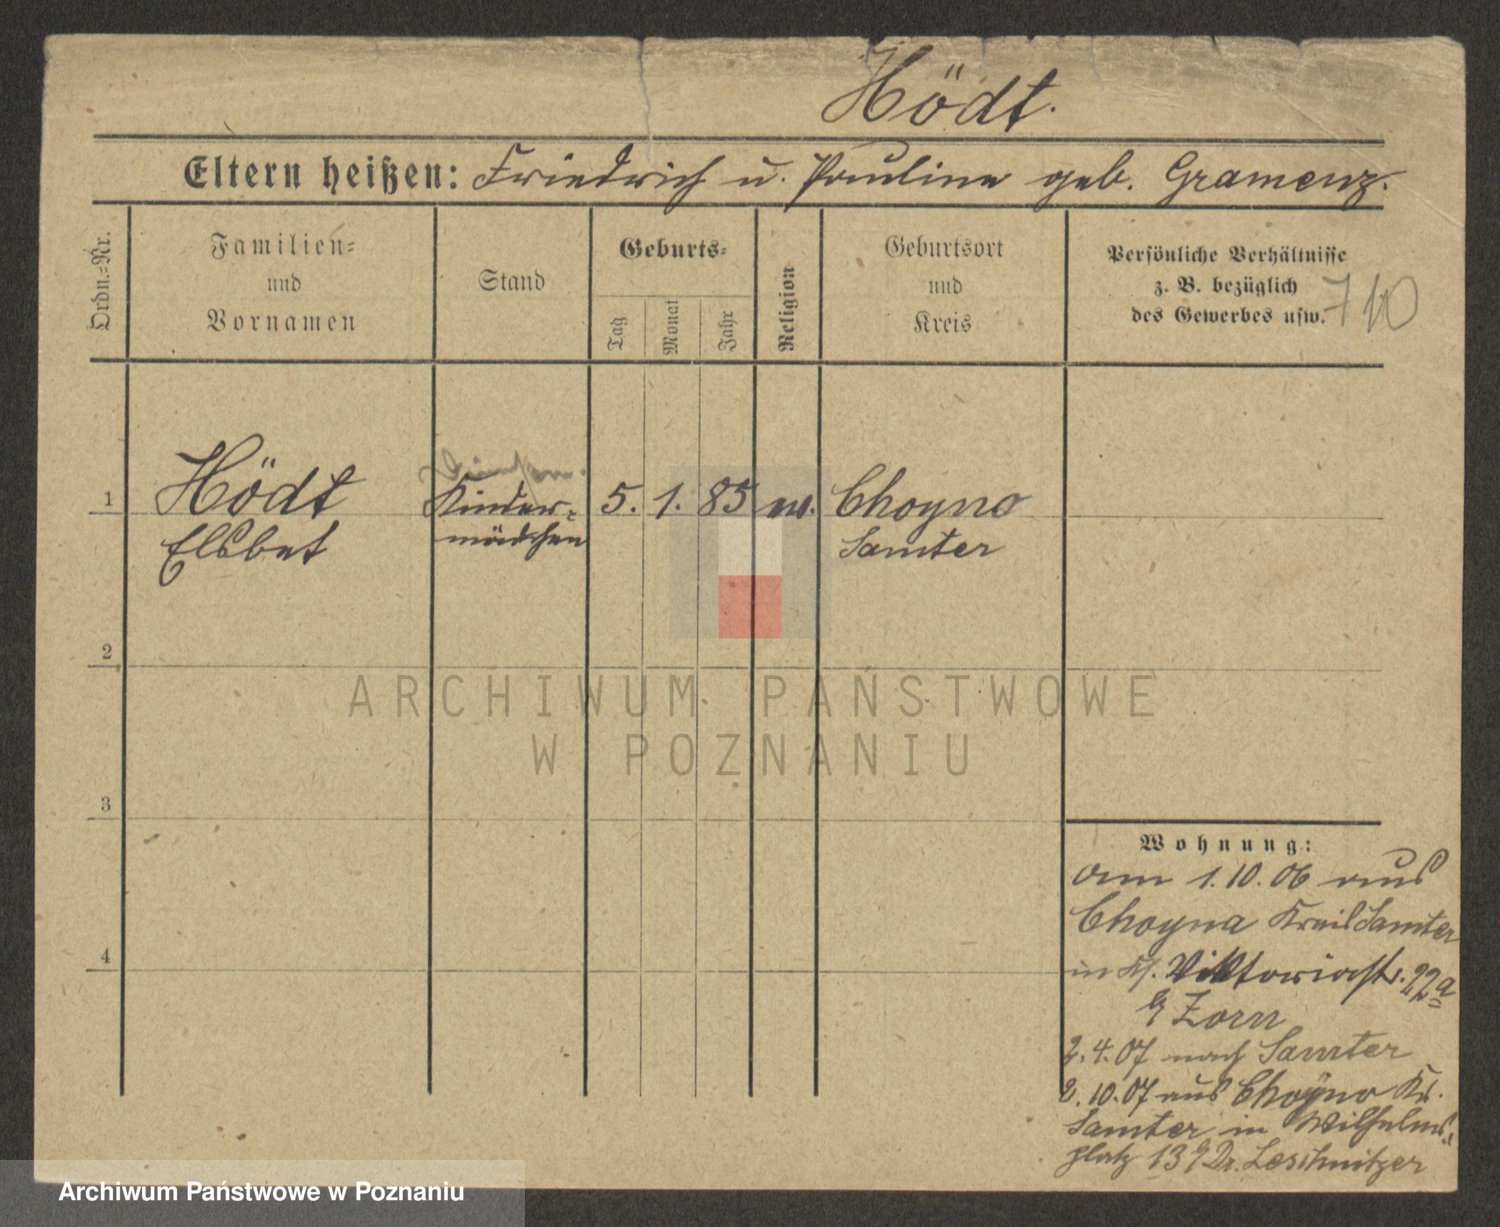 Hödt.
Eltern heißen: Friedrich u. Pauline geb. Gramenz.
Ordn.=Nr.
Familien=
und
Vornamen
Stand
Geburts=
Tag
Monat
Jahr
Religion
Geburtsort
und
Kreis
Persönliche Verhältnisse
z. B. bezüglich
des Gewerbes usw.
710
1
Hödt
Elsbet
Kinder=
mädchen
5. 1. 85
ev.
Choyno
Samter
2
3
4
Wohnung:
am 1.10.06 aus
Choyna Kreis Samter
in Viktoriastr. 22a
b/ Zorn
2.4.07 nach Samter
2.10.07 aus Choyno Kr.
Samter in Wilhelms=
platz 13 b/ Dr. Leschnitzer
ARCHIWUM PAŃSTWOWE
W POZNANIU
Archiwum Państwowe w Poznaniu